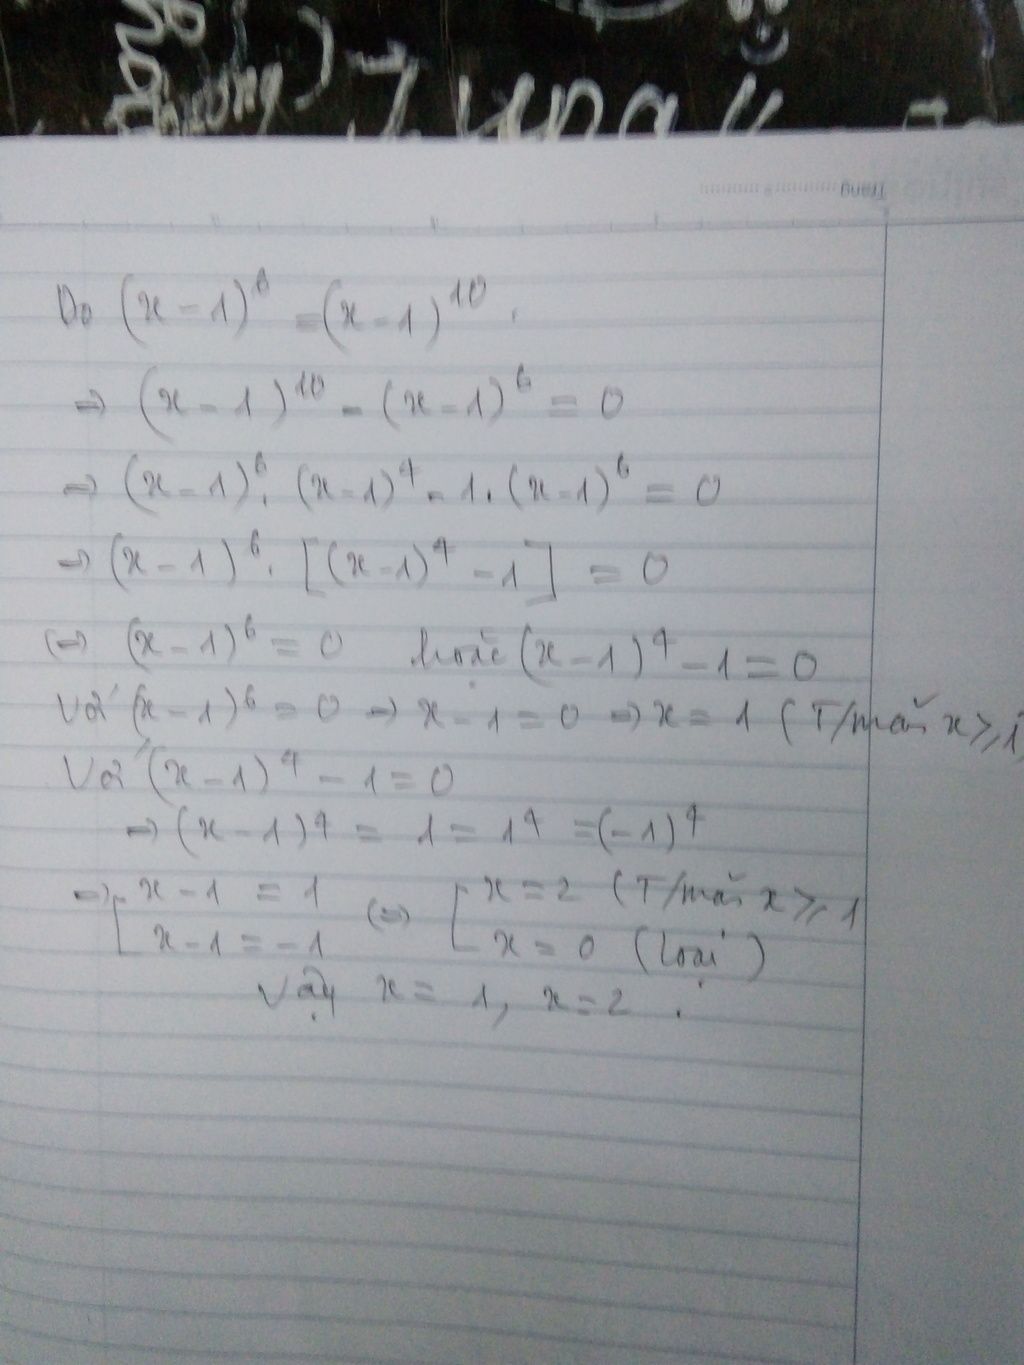 Trang
Do (x-1)^6 = (x-1)^10.
=> (x-1)^10 - (x-1)^6 = 0
=> (x-1)^6 . (x-1)^4 - 1. (x-1)^6 = 0
=> (x-1)^6 . [(x-1)^4 - 1] = 0
(=> (x-1)^6 = 0 hoặc (x-1)^4 - 1 = 0
Với (x-1)^6 = 0 => x-1=0 => x=1 (T/mãn x ≥ 1)
Với (x-1)^4 - 1 = 0
=> (x-1)^4 = 1 = 1^4 = (-1)^4
=> [ x-1 = 1 (=> [ x=2 (T/mãn x ≥ 1
x-1 = -1 x = 0 (loại)
Vậy x = 1, x=2 .